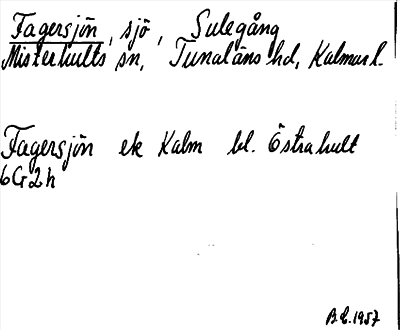 Fagersjön, sjö, Sulegång
Misterhults sn, Tunaläns hd, Kalmar l.
Fagersjön ek Kalm bl. Östrahult
6G2h
B.L. 1957